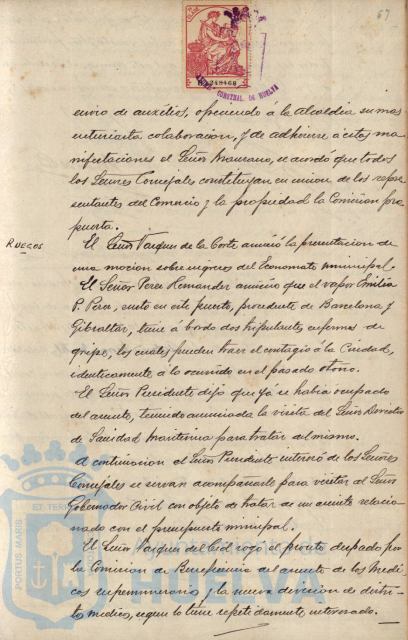 67
AYUNT. CONSTNAL. DE HUELVA
envio de auxilios, ofreciendo á la Alcaldia su mas
entusiasta colaboracion, y de adherirse á estas ma-
nifestaciones el Señor Maurano, se acordó que todos
los Señores Concejales constituyan en union de los repre-
sentantes del Comercio y la propiedad la Comision pro-
puesta.
RUEGOS
El Señor Vazquez de la Corte anunció la presentacion de
una mocion sobre ingresos del Economato municipal.
El Señor Perez Hernandez anuncio que el vapor Emilia
P. Perez, surto en este puerto, procedente de Barcelona y
Gibraltar, tiene a bordo dos tripulantes enfermos de
gripe, los cuales pueden traer el contagio á la Ciudad,
identicamente á lo ocurrido en el pasado otoño.
El Señor Presidente dijo que yá se habia ocupado
del asunto, teniendo anunciada la visita del Señor Director
de Sanidad Maritima para tratar del mismo.
A continuacion el Señor Presidente interesó de los Señores
Concejales se sirvan acompañarle para visitar al Señor
Gobernador Civil con objeto de tratar de un asunto relacio-
nado con el presupuesto municipal.
El Señor Vazquez del Cid rogó el pronto despacho por
la Comision de Beneficencia del asunto de los Medi-
cos supernumerarios y la nueva division de distri-
tos medicos, segun lo tiene repetidamente interesado.
PORTUS MARIS ET TERRAE
Ayuntamiento de
HUELVA